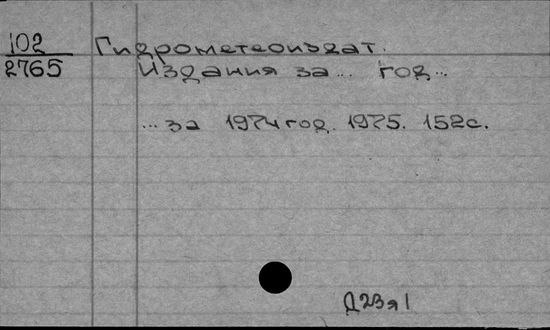 102 Гидрометеоиздат.
2765 Издания за... год...
...за 1974 год. 1975. 152с.
Д23я1